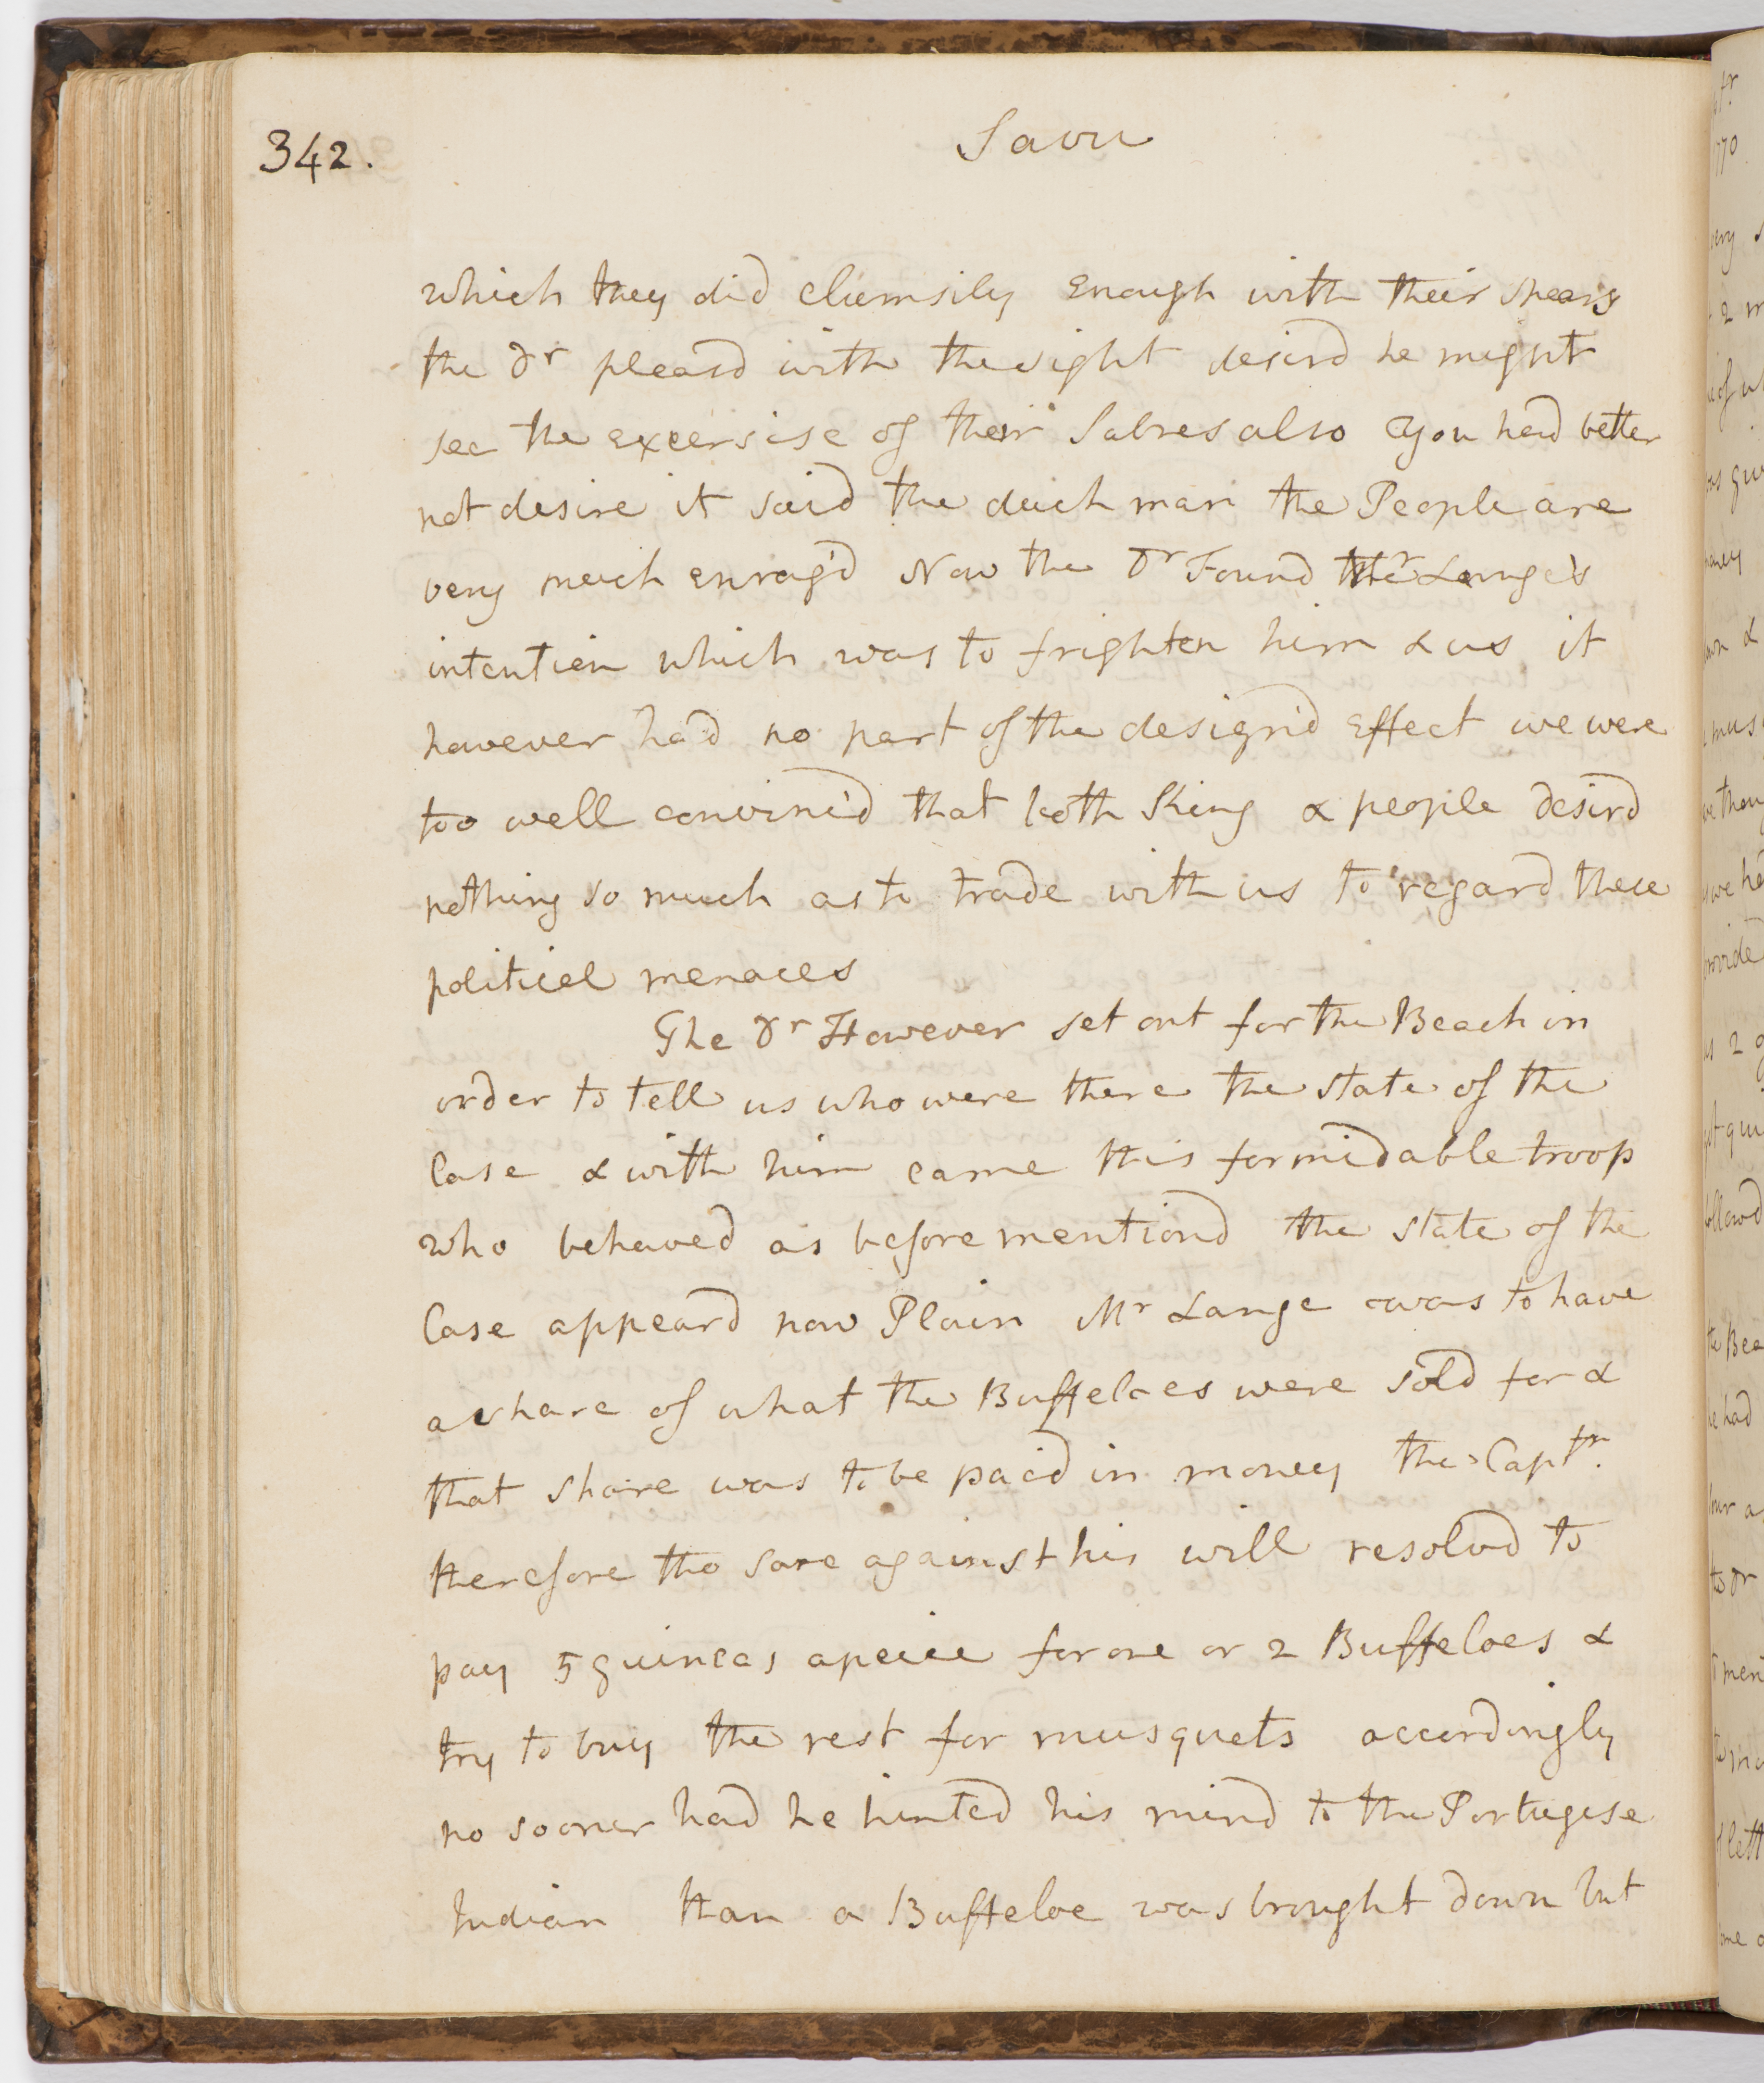 342.
Savu
which they did clumsily enough with their spears
the Dr pleasd with the sight desird he might
see the excersise of their Sabres also You had better
not desire it said the duch man the People are
very much enrag'd Now the Dr Found Mr Lange's
intention which was to frighten him & us it
however had no part of the design'd Effect we were
too well convinc'd that both King & people desird
nothing so much as to trade with us to regard these
political menaces
The Dr However set out for the Beach in
order to tell us who were there the state of the
Case & with him came this formidable troop
who behaved as before mentiond the state of the
Case appeard now Plain Mr Lange was to have
a share of what the Buffeloes were sold for &
that share was to be paid in money the Captn.
therefore tho sore against his will resolvd to
pay 5 guineas apeice for one or 2 Buffeloes &
try to buy the rest for musquets accordingly
no sooner had he hinted his mind to the Portugese
Indian than a Buffeloe was brought down but